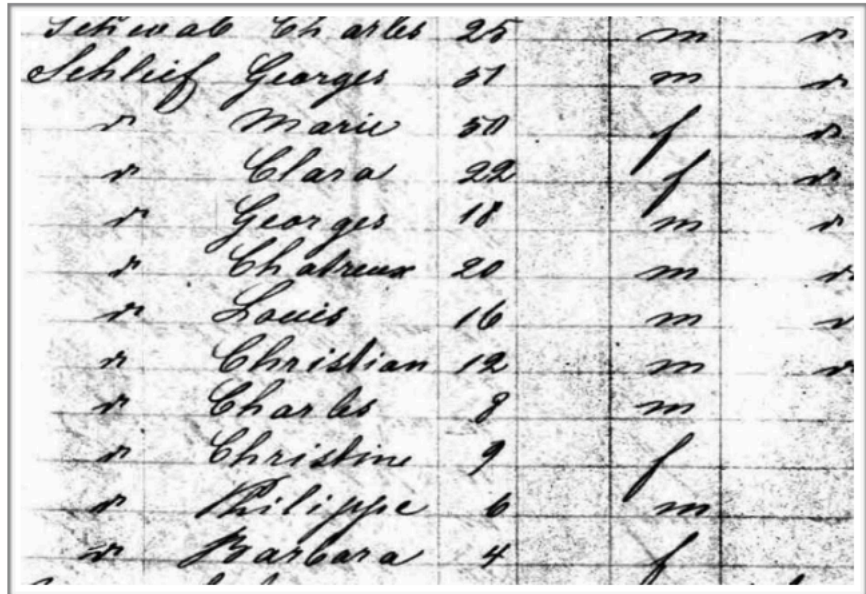 Schwab Charles 25 m "
Schlief Georges 51 m "
" Marie 50 f "
" Clara 22 f "
" Georges 18 m "
" Chatreux 20 m "
" Louis 16 m "
" Christian 12 m "
" Charles 8 m
" Christine 9 f
" Philippe 6 m
" Barbara 4 f